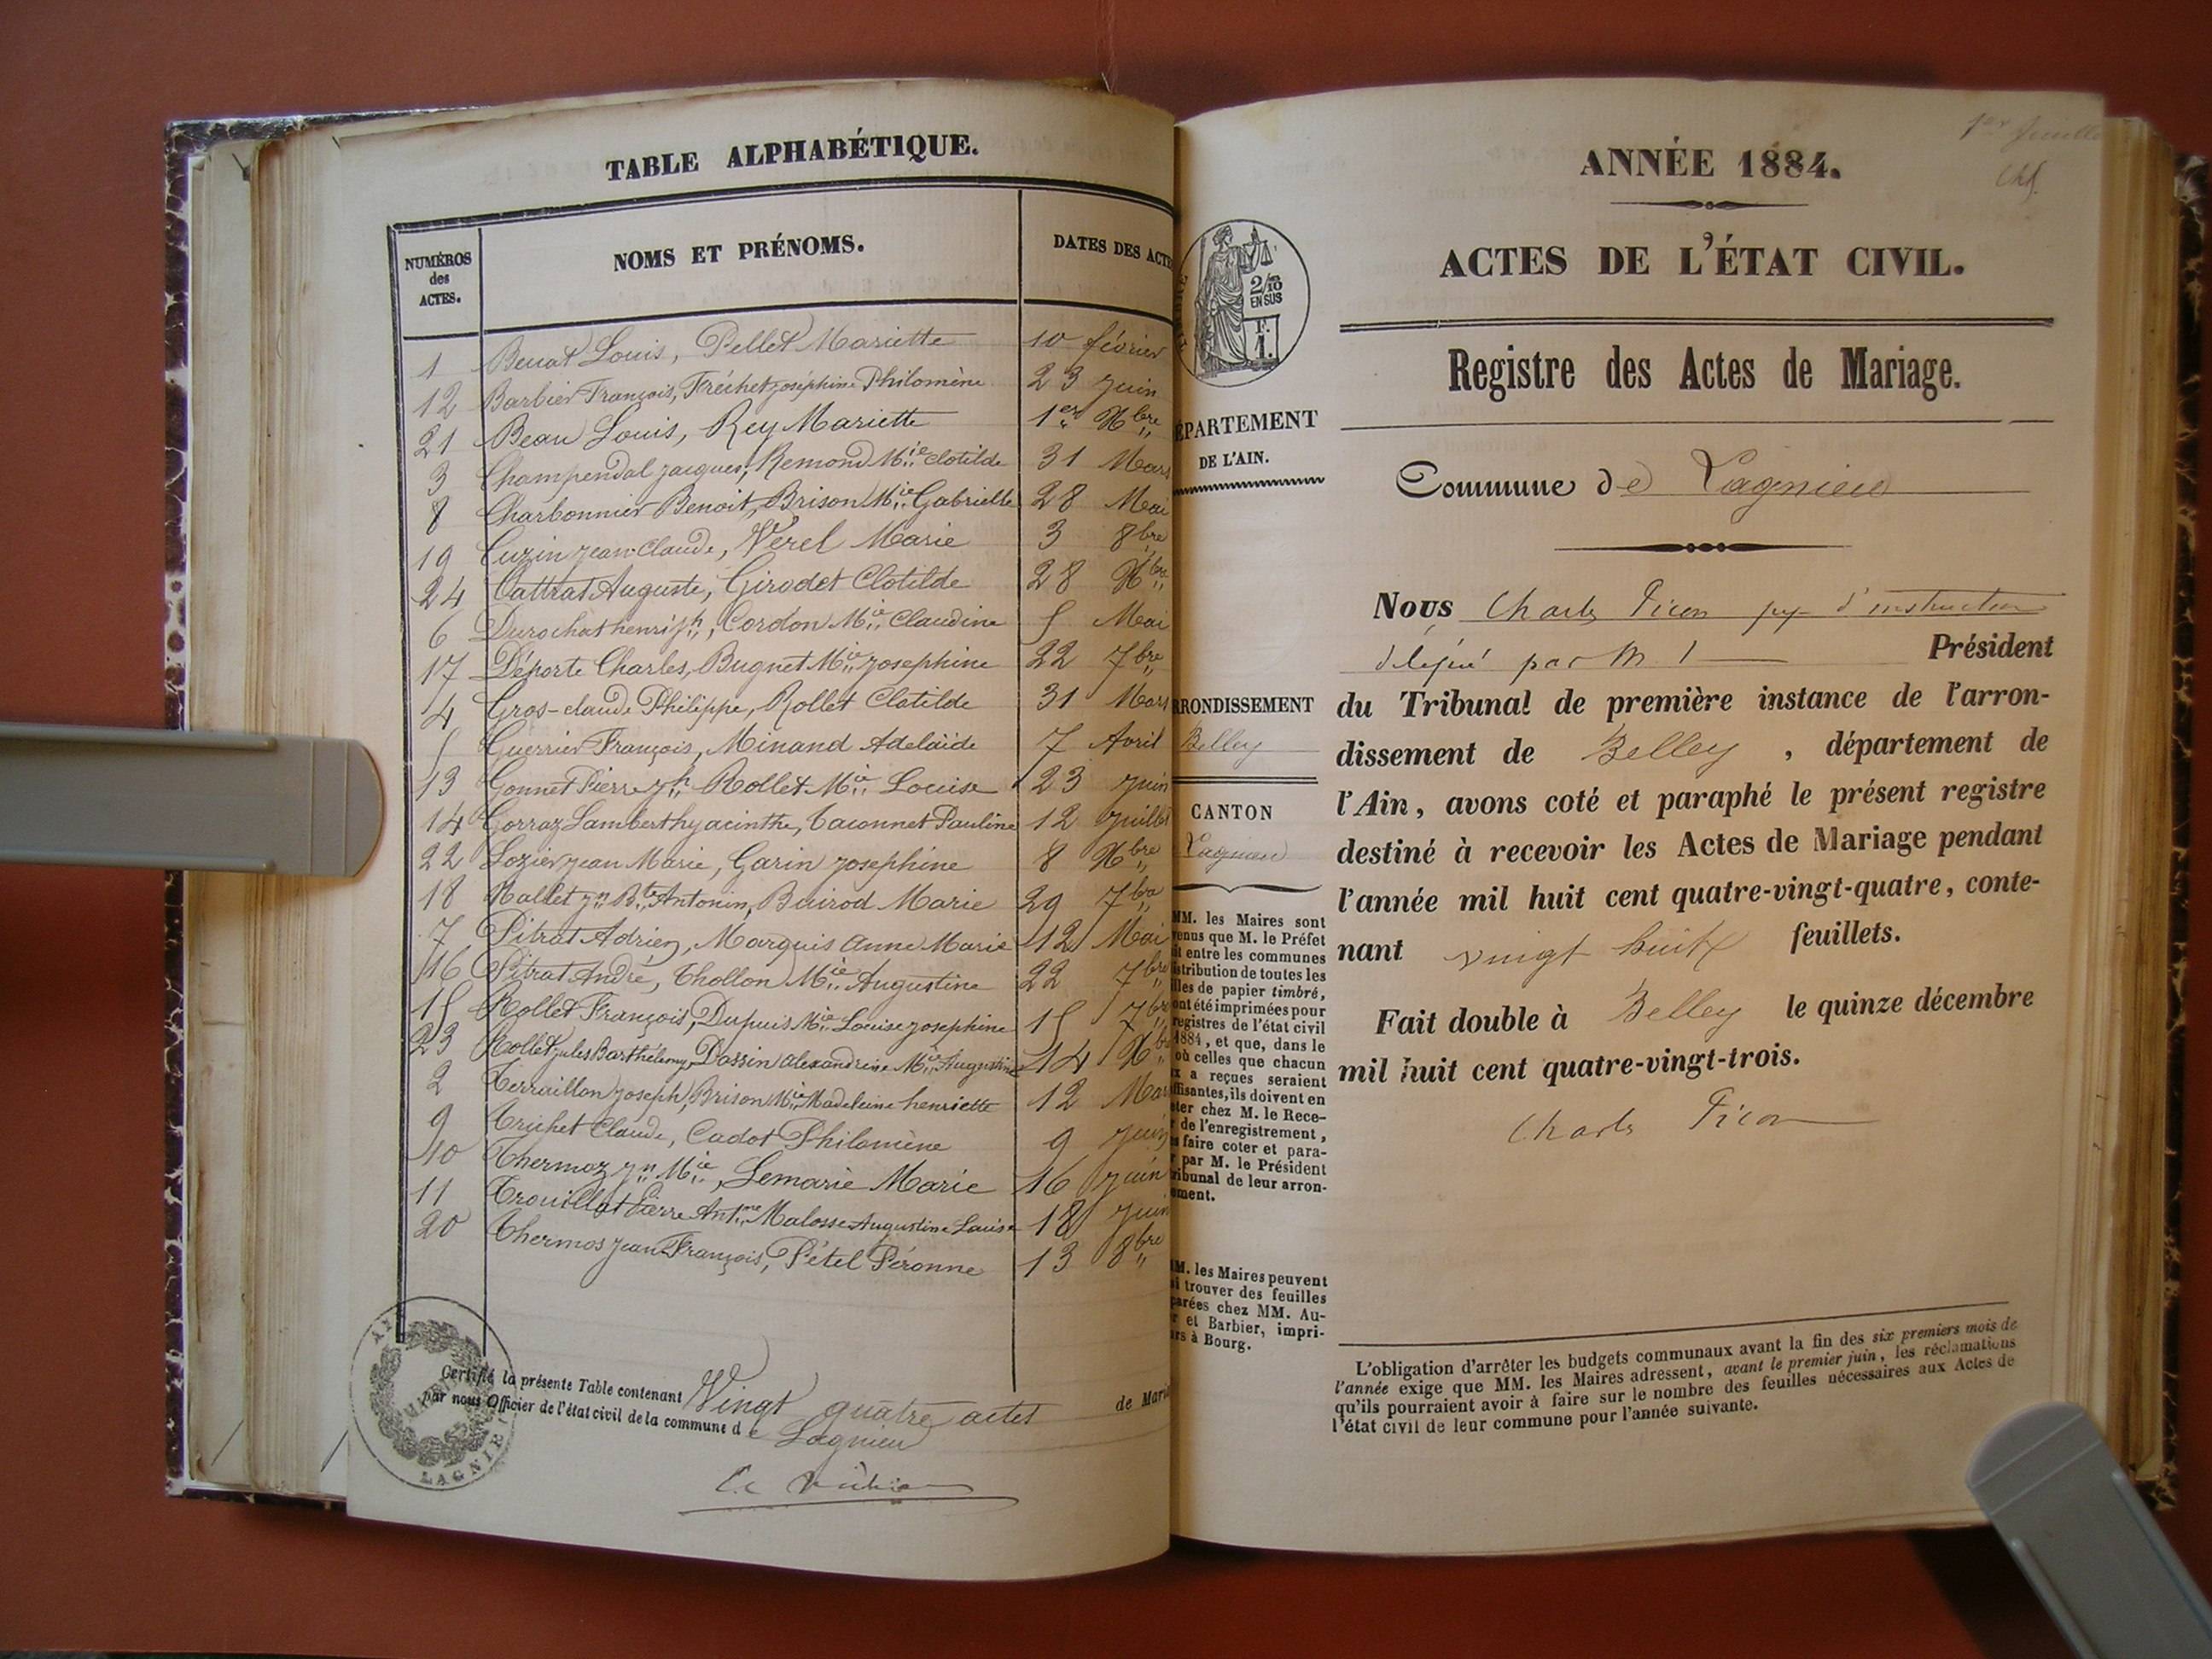 TABLE ALPHABÉTIQUE.
NUMÉROS des ACTES.
NOMS ET PRÉNOMS.
DATES DES ACTE
1 Benat Louis, Pellet Mariette 10 février
12 Barbier François, Fréchet joséphine Philomène 23 juin
21 Beau Louis, Rey Mariette 1er Xbre
3 Champendal jacques, Remond Mie Clotilde 31 Mars
8 Charbonnier Benoit, Brison Mie Gabrielle 28 Mai
19 Cuzin jean Claude, Verel Marie 3 8bre
24 Cattrat Auguste, Girodet Clotilde 28 Xbre
6 Durochat henri jh, Cordon Mie Claudine 5 Mai
17 Déporte Charles, Bugnet Mie josephine 22 7bre
4 Gros-claude Philippe, Rollet Clotilde 31 Mars
5 Guerrier François, Minand Adelaïde 7 Avril
13 Gonnet Pierre jh Rollet Mie Louise 23 juin
14 Gorraz Lambert hyacinthe, Taconnet Pauline 12 juillet
22 Lozier jean Marie, Garin josephine 8 Xbre
18 Nallet jn Bte Antonin, Buirod Marie 29 7bre
7 Pitrat Adrien, Marquis anne Marie 12 Mai
16 Pitrat André, Thollon Mie Augustine 22 7bre
15 Rollet François, Dupuis Mie Louise josephine 15 7bre
23 Rollet jules Barthélemy, Dassin alexandrine Mie Augustine 14 Xbre
2 Terraillon joseph, Brison Mie Madeleine henriette 12 Mars
9 Trichet Claude, Cadot Philomène 9 juin
10 Thermoz jn Mie, Lemarie Marie 16 juin
11 Trouillot Pierre Antne Malosse Augustine Louise 18 juin
20 Thermos jean François, Pétel Péronne 13 8bre
Certifié la présente Table contenant Vingt quatre actes de Mari
par nous Officier de l'état civil de la commune de Lagnieu
LAGNIE
ANNÉE 1884.
ACTES DE L'ÉTAT CIVIL.
2/10 EN SUS
F. 1.
Registre des Actes de Mariage.
ÉPARTEMENT
DE L'AIN.
Commune de Lagnieu
Nous Charles Picon juge d'instruction
délégué par M. l Président
du Tribunal de première instance de l'arron-
dissement de Belley, département de
l'Ain, avons coté et paraphé le présent registre
destiné à recevoir les Actes de Mariage pendant
l'année mil huit cent quatre-vingt-quatre, conte-
nant vingt huit feuillets.
Fait double à Belley le quinze décembre
mil huit cent quatre-vingt-trois.
Charles Picon
RRONDISSEMENT
Belley
CANTON
Lagnieu
MM. les Maires sont
venus que M. le Préfet
it entre les communes
istribution de toutes les
illes de papier timbré,
ont été imprimées pour
registres de l'état civil
1884, et que, dans le
où celles que chacun
x a reçues seraient
ffisantes, ils doivent en
ter chez M. le Rece-
r de l'enregistrement,
s faire coter et para-
r par M. le Président
ribunal de leur arron-
ement.
M. les Maires peuvent
i trouver des feuilles
parées chez MM. Au-
r et Barbier, impri-
rs à Bourg.
L'obligation d'arrêter les budgets communaux avant la fin des six premiers mois de
l'année exige que MM. les Maires adressent, avant le premier juin, les réclamations
qu'ils pourraient avoir à faire sur le nombre des feuilles nécessaires aux Actes de
l'état civil de leur commune pour l'année suivante.